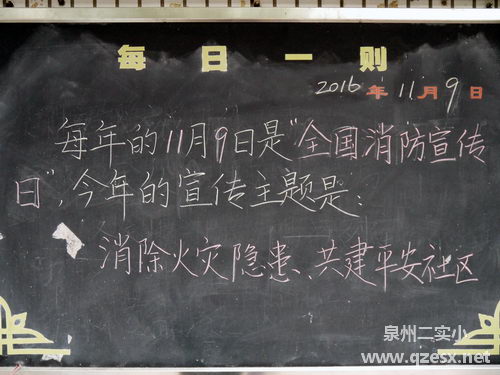 每日一则
2016年11月9日
每年的11月9日是"全国消防宣传
日",今年的宣传主题是:
消除火灾隐患、共建平安社区
泉州二实小
www.qzesx.net